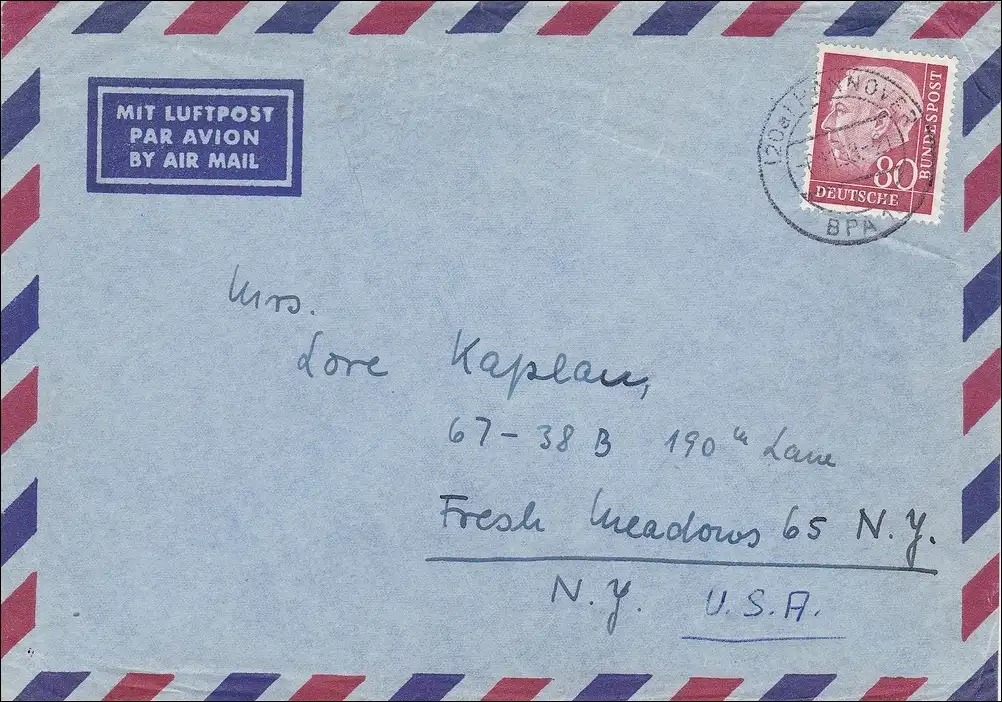 MIT LUFTPOST
PAR AVION
BY AIR MAIL
(20a) HANNOVER
BPA 1
80
DEUTSCHE
BUNDESPOST
Mrs.
Lore Kaplan,
67-38 B 190th Lane
Fresh Meadows 65 N.Y.
N.Y. U.S.A.